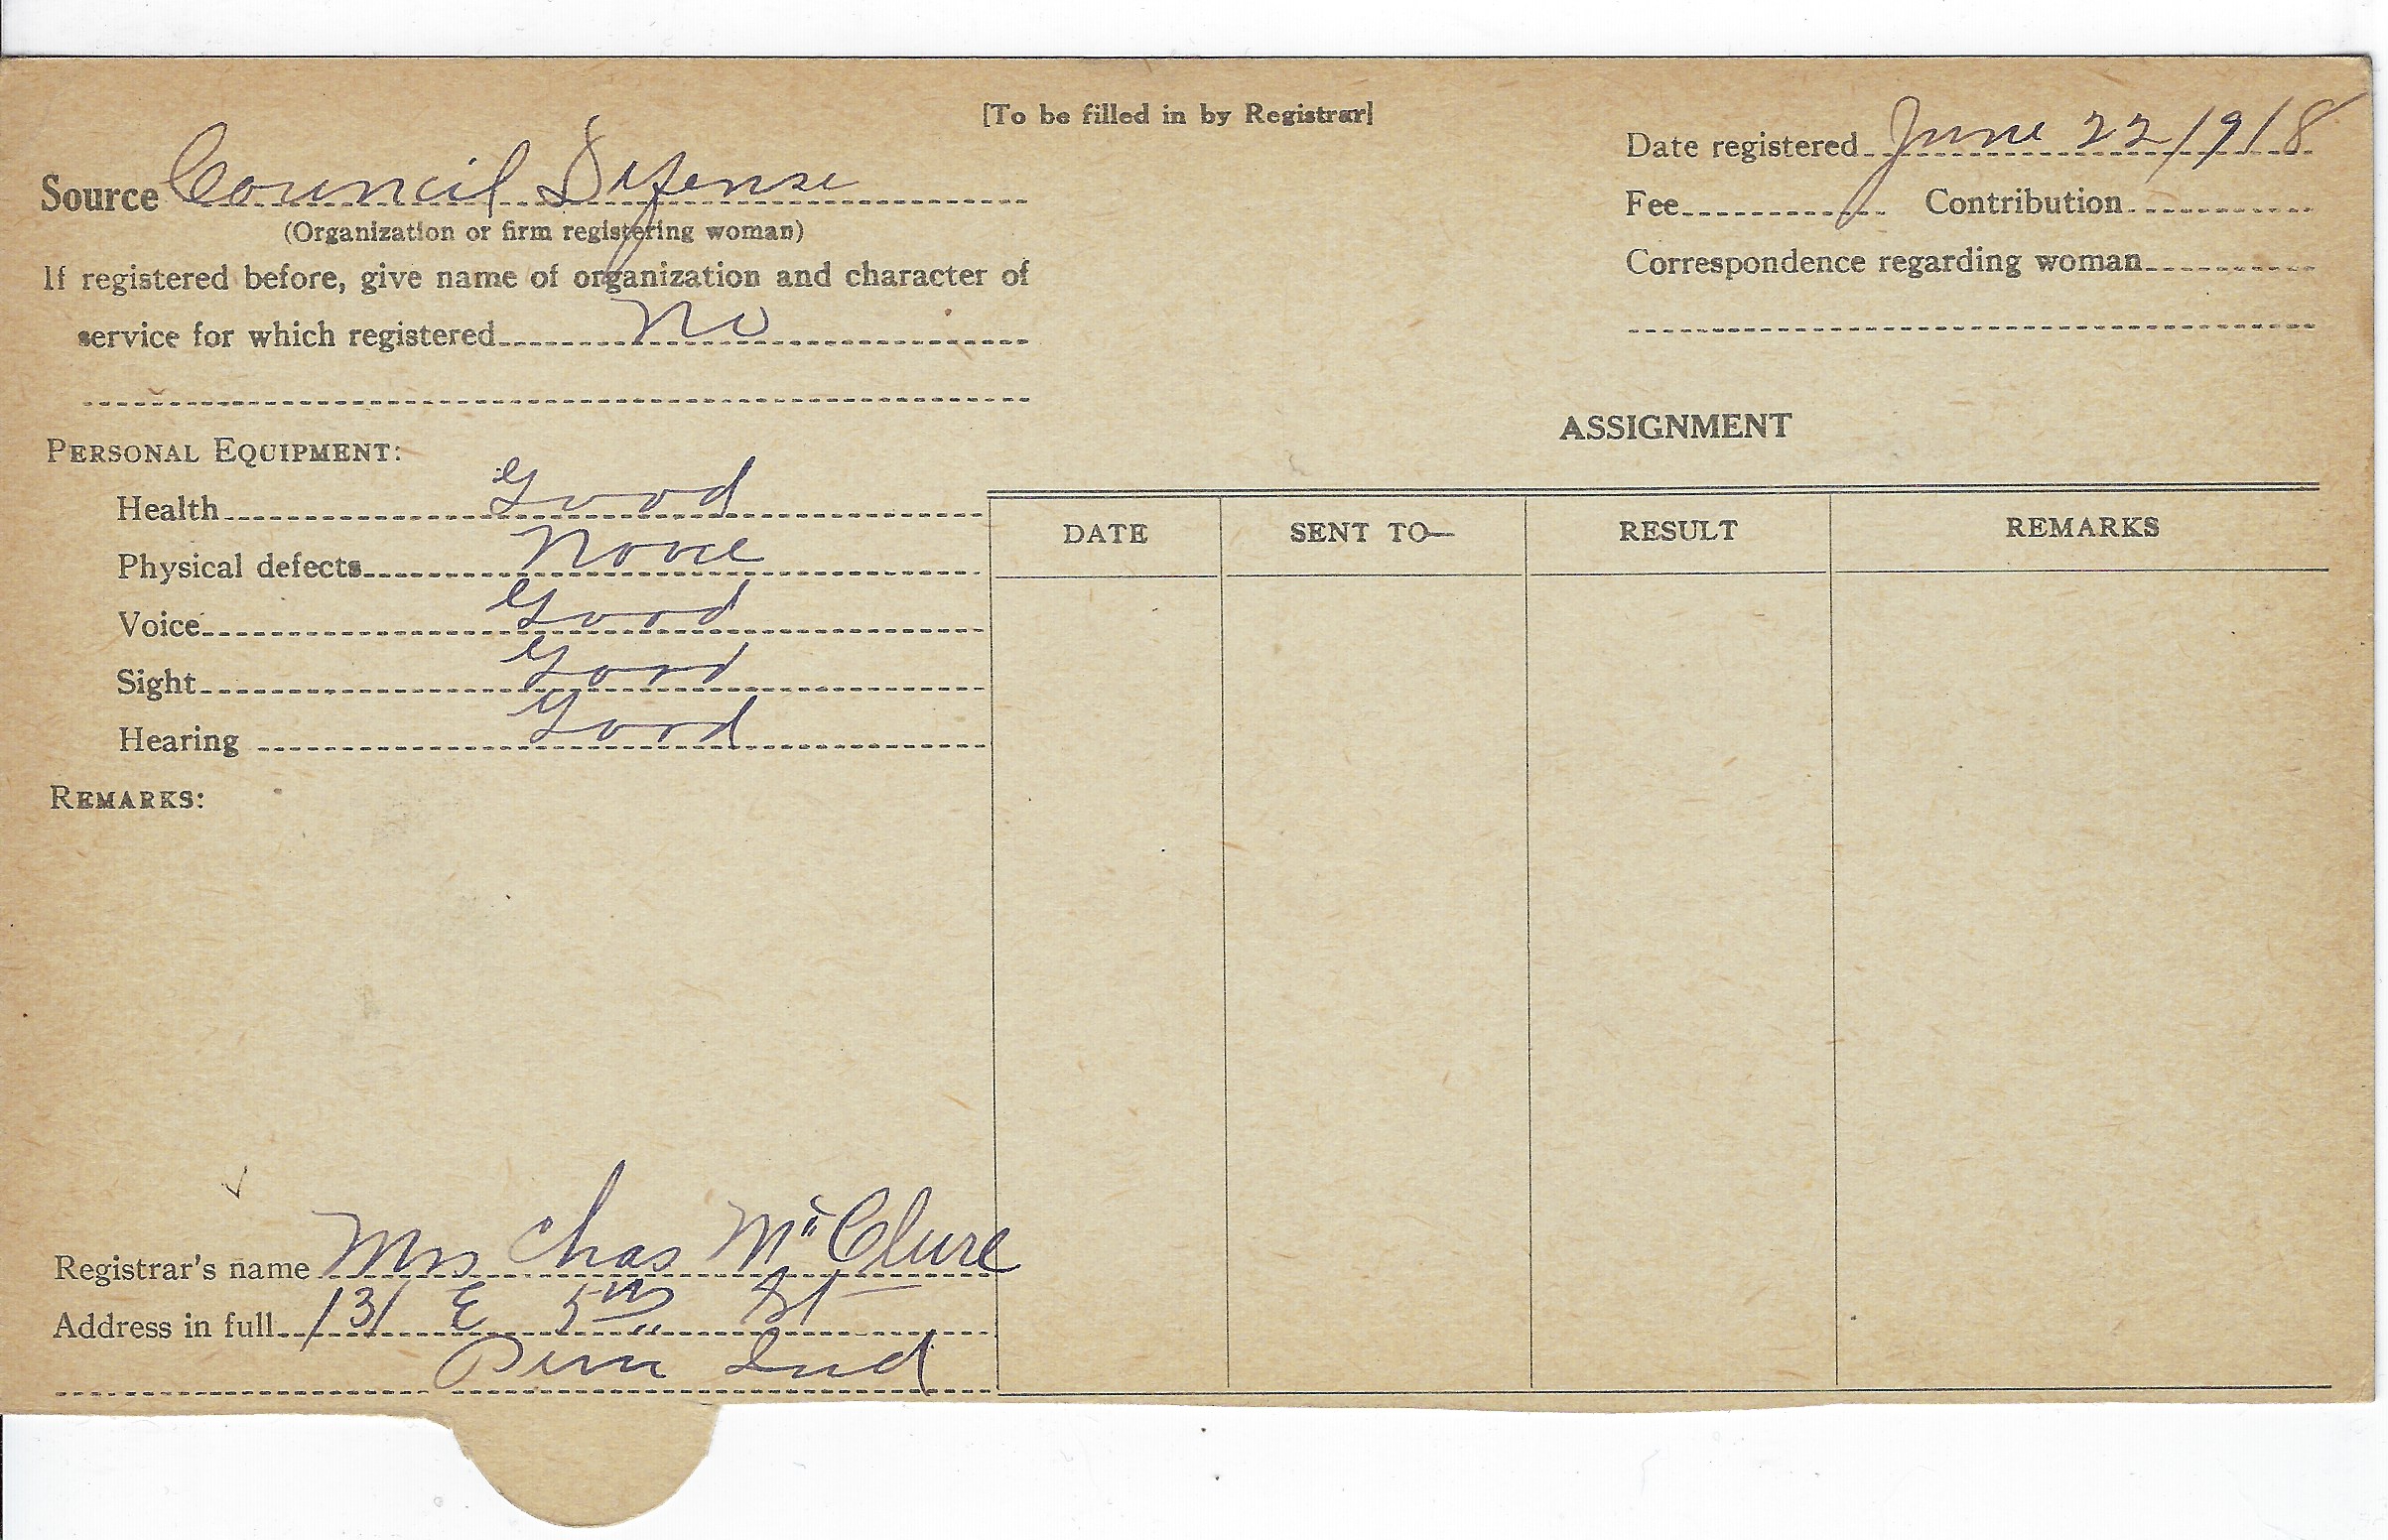 [To be filled in by Registrar]
Source Council Defense
(Organization or firm registering woman)
If registered before, give name of organization and character of
service for which registered No
Date registered June 22/918
Fee Contribution
Correspondence regarding woman
PERSONAL EQUIPMENT:
Health Good
Physical defects None
Voice Good
Sight Good
Hearing Good
REMARKS:
Registrar's name Mrs Chas McClure
Address in full 131 E 5th St
Peru Ind
ASSIGNMENT
DATE SENT TO— RESULT REMARKS